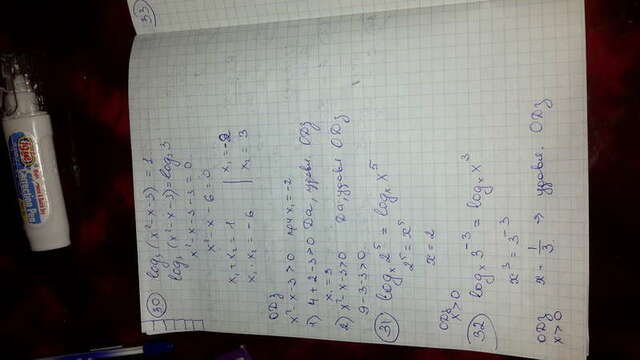 33
30 log₃(x²-x-3) = 1
log₃(x²-x-3) = log₃3
x²-x-3-3=0
x²-x-6=0
x₁+x₂=-1 | x₁=-2
x₁x₂=-6 | x₂=3
ОДЗ
x²-x-3>0 при x₁=-2
1) 4+2-3>0 Да, удовл ОДЗ
x₂=3
2) x²-x-3>0 Да, удовл ОДЗ
9-3-3>0
31 logₓ2⁵ = logₓx⁵
2⁵=x⁵
x=2
ОДЗ
x>0
32 logₓ3⁻³ = logₓx³
x³=3⁻³
ОДЗ x=1/3 ⇒ удовл. ОДЗ
x>0